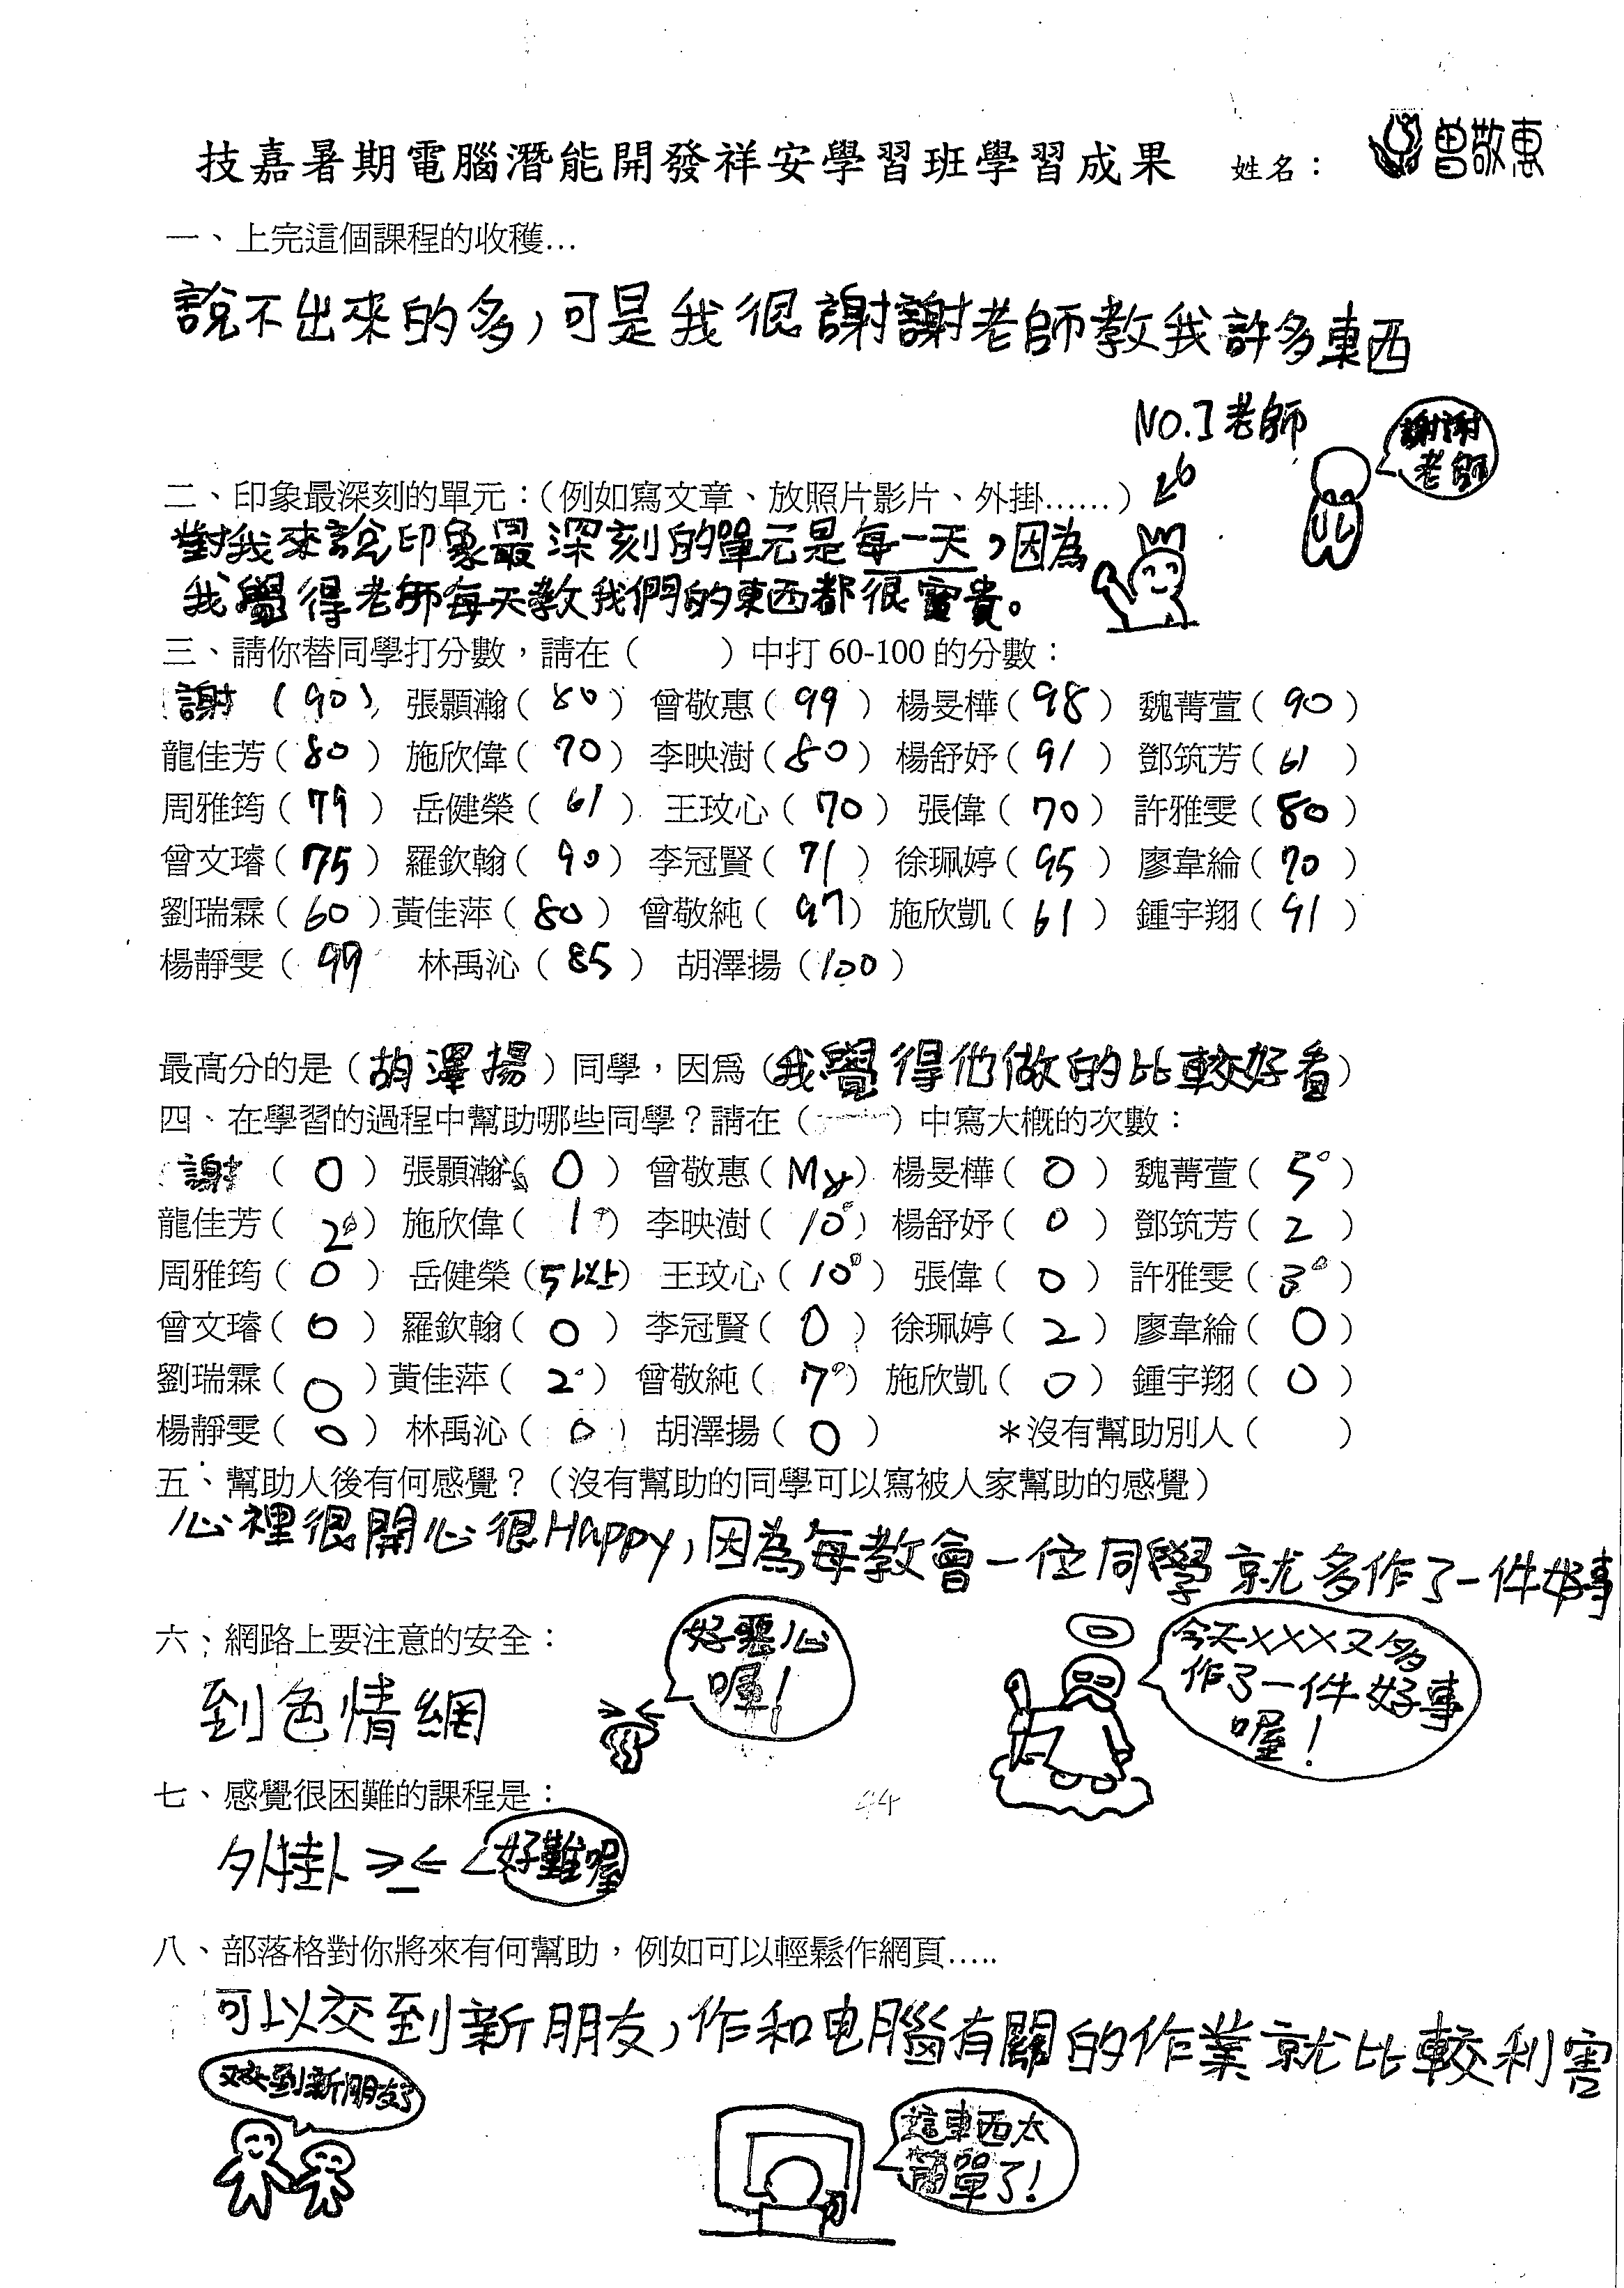 技嘉暑期電腦潛能開發祥安學習班學習成果 姓名：曾敬惠
一、上完這個課程的收穫…
說不出來的多，可是我很謝謝老師教我許多東西
NO.1老師
謝謝
老師
二、印象最深刻的單元：（例如寫文章、放照片影片、外掛……）
對我來說印象最深刻的單元是每一天，因為
我覺得老師每天教我們的東西都很寶貴。
三、請你替同學打分數，請在（ ）中打 60-100 的分數：
謝（90）張顥瀚（80）曾敬惠（99）楊旻樺（98）魏菁萱（90）
龍佳芳（80）施欣偉（70）李映澍（80）楊舒妤（91）鄧筑芳（61）
周雅筠（79）岳健榮（61）王玟心（70）張偉（70）許雅雯（80）
曾文璿（75）羅欽翰（90）李冠賢（71）徐珮婷（95）廖韋綸（70）
劉瑞霖（60）黃佳萍（80）曾敬純（97）施欣凱（61）鍾宇翔（91）
楊靜雯（99 林禹沁（85）胡澤揚（100）
最高分的是（胡澤揚）同學，因為（我覺得他做的比較好看）
四、在學習的過程中幫助哪些同學？請在（ ）中寫大概的次數：
謝（0）張顥瀚（0）曾敬惠（My）楊旻樺（0）魏菁萱（5）
龍佳芳（2）施欣偉（1）李映澍（10）楊舒妤（0）鄧筑芳（2）
周雅筠（0）岳健榮（5以上）王玟心（10）張偉（0）許雅雯（3）
曾文璿（0）羅欽翰（0）李冠賢（0）徐珮婷（2）廖韋綸（0）
劉瑞霖（0）黃佳萍（2）曾敬純（7）施欣凱（0）鍾宇翔（0）
楊靜雯（0）林禹沁（0）胡澤揚（0） ＊沒有幫助別人（ ）
五、幫助人後有何感覺？（沒有幫助的同學可以寫被人家幫助的感覺）
心裡很開心很Happy，因為每教會一位同學就多作了一件好事
六、網路上要注意的安全：
到色情網
好惡心
喔！
今天XXX又多
作了一件好事
喔！
七、感覺很困難的課程是：
外掛 >_< 好難喔
44
八、部落格對你將來有何幫助，例如可以輕鬆作網頁.....
可以交到新朋友，作和电腦有關的作業就比較利害
又交到新朋友了
這東西太
簡單了！